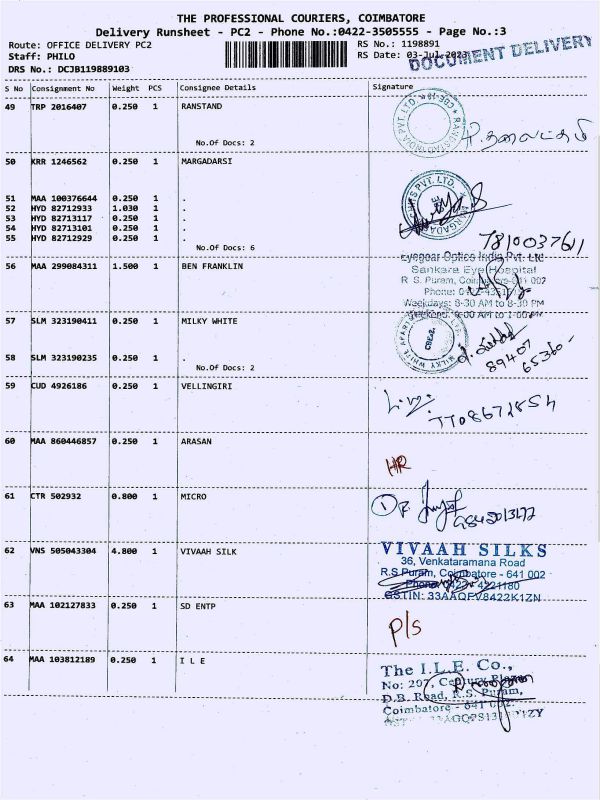 THE PROFESSIONAL COURIERS, COIMBATORE
Delivery Runsheet - PC2 - Phone No.:0422-3505555 - Page No.:3
Route: OFFICE DELIVERY PC2
RS No.: 1198891
Staff: PHILO
RS Date: 03-Jul-2023
DOCUMENT DELIVERY
DRS No.: DCJB119889103
S No Consignment No Weight PCS Consignee Details Signature
49 TRP 2016407 0.250 1 RANSTAND
No.Of Docs: 2
50 KRR 1246562 0.250 1 MARGADARSI
51 MAA 100376644 0.250 1 .
52 HYD 82712933 1.030 1 .
53 HYD 82713117 0.250 1 .
54 HYD 82713101 0.250 1 .
55 HYD 82712929 0.250 1 .
No.Of Docs: 6
7810037611
56 MAA 299084311 1.500 1 BEN FRANKLIN
Eyegear Optics India Pvt. Ltd
Sankara Eye Hospital
R. S. Puram,
Weekdays: 8-30 AM to 8-30 PM
57 SLM 323190411 0.250 1 MILKY WHITE
58 SLM 323190235 0.250 1 .
No.Of Docs: 2
89407
65360
59 CUD 4926186 0.250 1 VELLINGIRI
60 MAA 860446857 0.250 1 ARASAN
HR
61 CTR 502932 0.800 1 MICRO
62 VNS 505043304 4.800 1 VIVAAH SILK
VIVAAH SILKS
36, Venkataramana Road
R.S Puram, Coimbatore - 641 002
GSTIN: 33AAQFV8422K1ZN
63 MAA 102127833 0.250 1 SD ENTP
P/S
64 MAA 103812189 0.250 1 I L E
The I.L.E. Co.,
No: 207, Century Plaza
D.B. Road, R.S. Puram,
Coimbatore - 641 002.